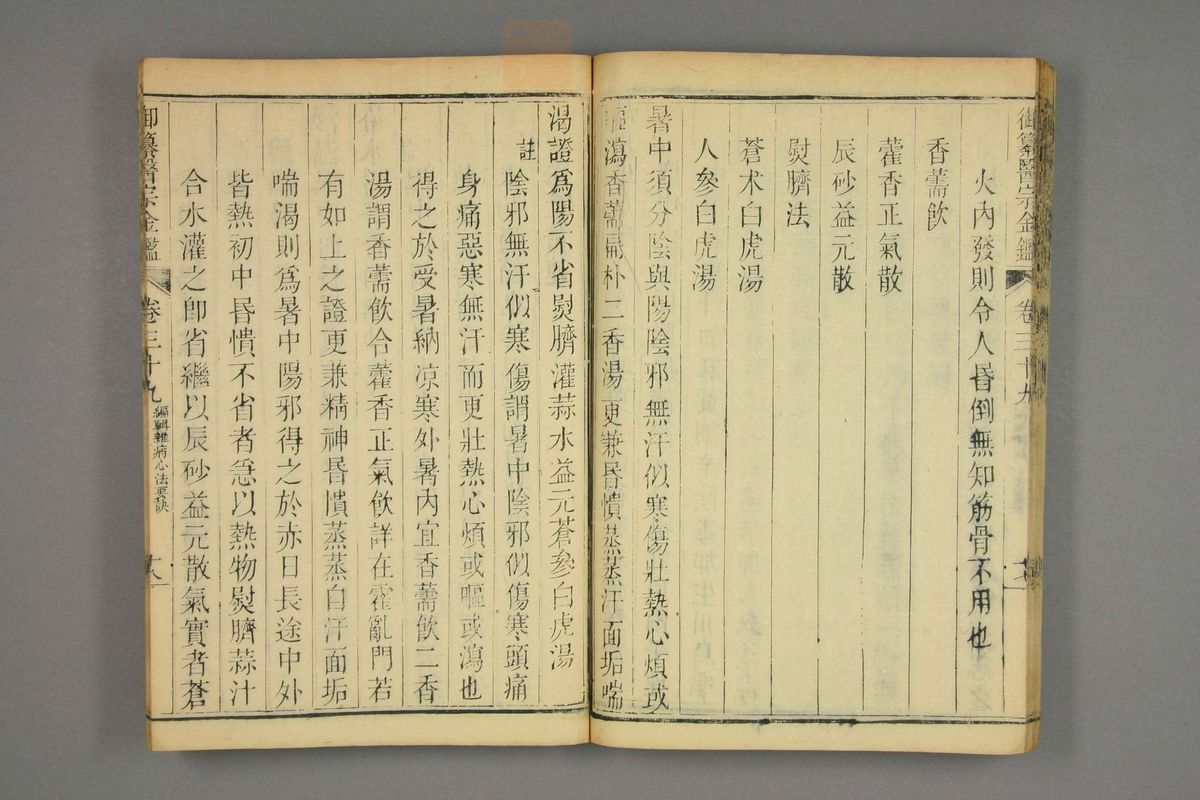 御纂醫宗金鑑 卷三十九
火內發則令人昏倒無知筋骨不用也
香薷飲
藿香正氣散
辰砂益元散
熨臍法
蒼朮白虎湯
人參白虎湯
暑中須分陰與陽陰邪無汗似寒傷壯熱心煩或
嘔瀉香薷扁朴二香湯更兼昏憒蒸蒸汗面垢喘
渴證為陽不省熨臍灌蒜水益元蒼參白虎湯
註 陰邪無汗似寒傷謂暑中陰邪似傷寒頭痛
身痛惡寒無汗而更壯熱心煩或嘔或瀉也
得之於受暑納凉寒外暑內宜香薷飲二香
湯謂香薷飲合藿香正氣飲詳在霍亂門若
有如上之證更兼精神昏憒蒸蒸自汗面垢
喘渴則為暑中陽邪得之於赤日長途中外
皆熱初中昏憒不省者急以熱物熨臍蒜汁
合水灌之即省繼以辰砂益元散氣實者蒼
御纂醫宗金鑑 卷三十九 編輯雜病心法要訣 十八